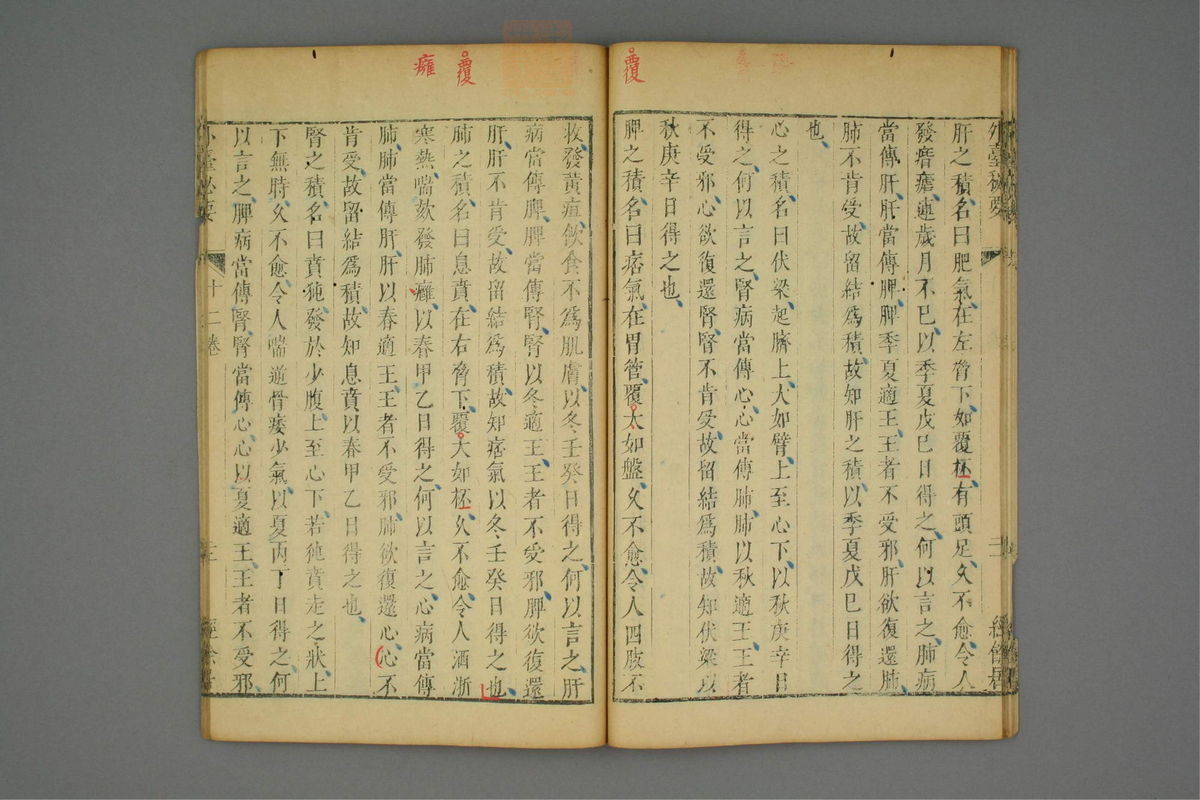 覆
外臺秘要
肝之積名曰肥氣在左脅下如覆杯有頭足久不愈令人
發瘖瘧連歲月不已以季夏戊巳日得之何以言之肺病
當傳肝肝當傳脾脾季夏適王王者不受邪肝欲復還肺
肺不肯受故留結爲積故知肝之積以季夏戊巳日得之
也
心之積名曰伏梁起臍上大如臂上至心下以秋庚辛日
得之何以言之腎病當傳心心當傳肺肺以秋適王王者
不受邪心欲復還腎腎不肯受故留結爲積故知伏梁以
秋庚辛日得之也
脾之積名曰痞氣在胃管覆大如盤久不愈令人四肢不
覆
癰
收發黃疸飲食不爲肌膚以冬壬癸日得之何以言之肝
病當傳脾脾當傳腎腎以冬適王王者不受邪脾欲復還
肝肝不肯受故留結爲積故知痞氣以冬壬癸日得之也
肺之積名曰息賁在右脅下覆大如杯久不愈令人洒淅
寒熱喘欬發肺癰以春甲乙日得之何以言之心病當傳
肺肺當傳肝肝以春適王王者不受邪肺欲復還心心不
肯受故留結爲積故知息賁以春甲乙日得之也
腎之積名曰賁㹠發於少腹上至心下若㹠賁走之狀上
下無時久不愈令人喘逆骨痿少氣以夏丙丁日得之何
以言之脾病當傳腎腎當傳心心以夏適王王者不受邪
外臺秘要
十二卷